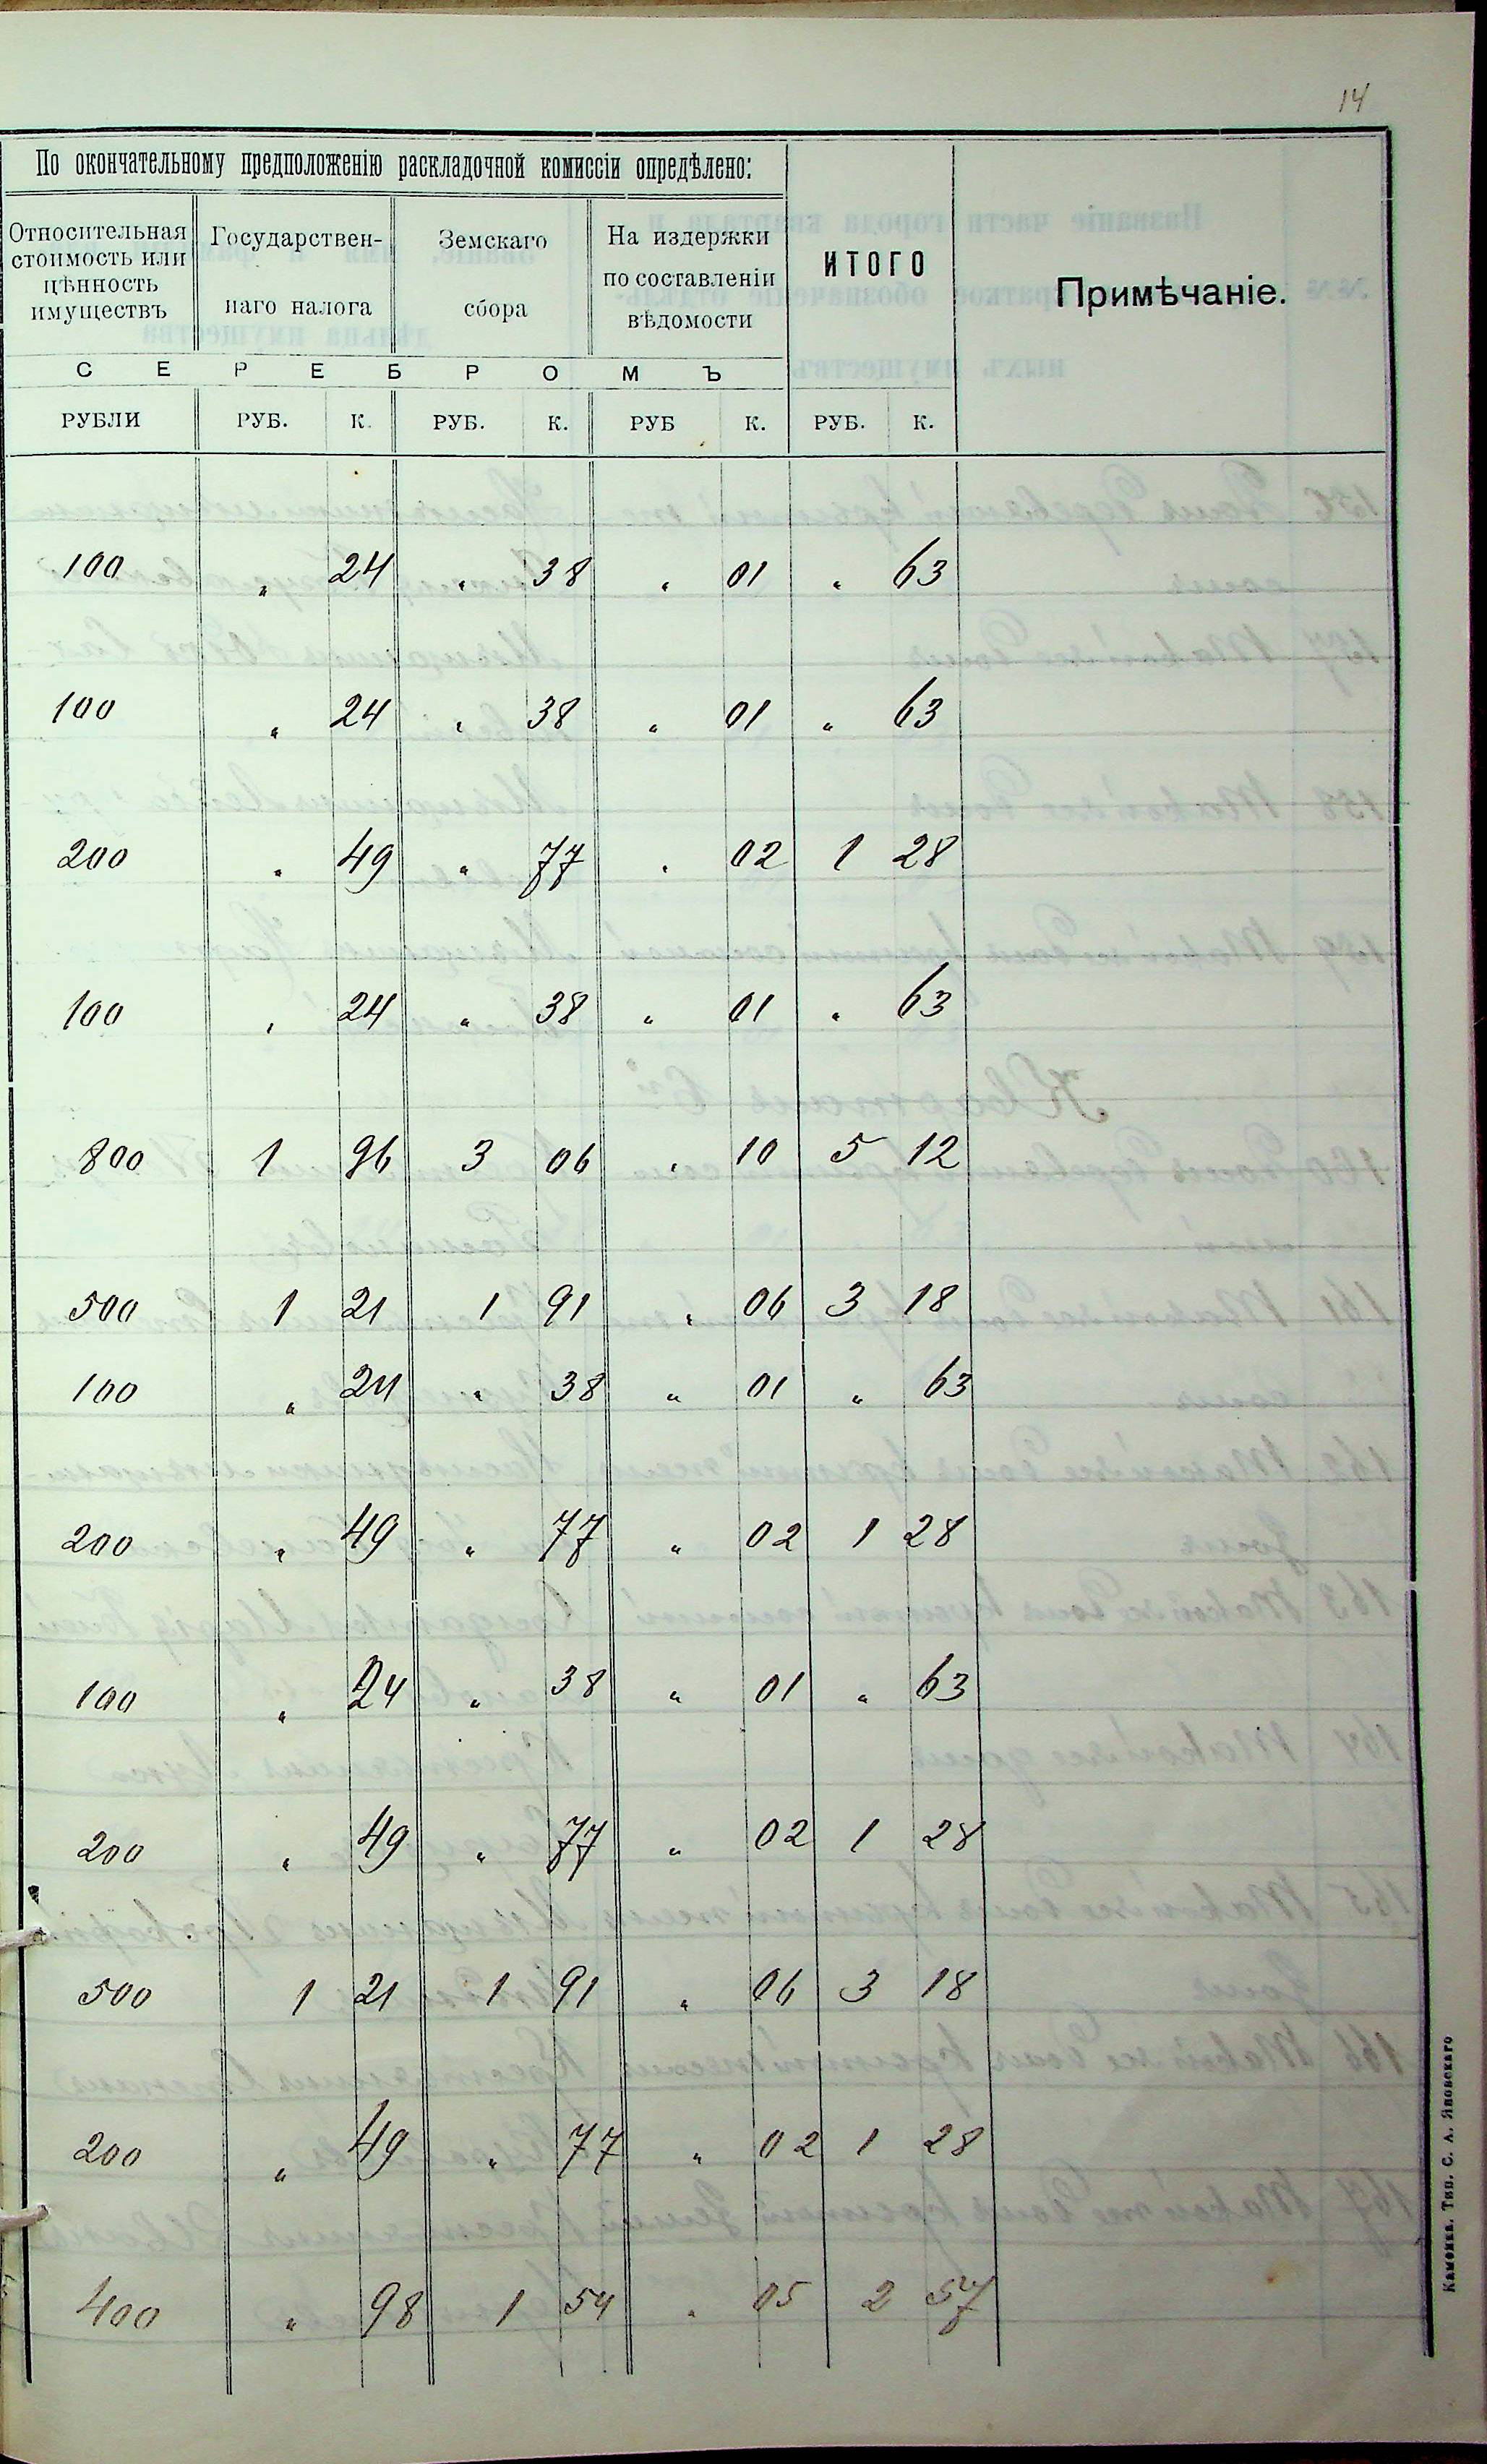 14
По окончательному предположенію раскладочной комиссіи опредѣлено:
Относительная стоимость или цѣнность имуществъ
Государствен-
наго налога
Земскаго
сбора
На издержки
по составленіи
вѣдомости
ИТОГО
Примѣчаніе.
С Е Р Е Б Р О М Ъ
РУБЛИ РУБ. К. РУБ. К. РУБ К. РУБ. К.
100 „ 24 „ 38 „ 01 „ 63
100 „ 24 „ 38 „ 01 „ 63
200 „ 49 „ 77 „ 02 1 28
100 „ 24 „ 38 „ 01 „ 63
800 1 96 3 06 „ 10 5 12
500 1 21 1 91 „ 06 3 18
100 „ 24 „ 38 „ 01 „ 63
200 „ 49 „ 77 „ 02 1 28
100 „ 24 „ 38 „ 01 „ 63
200 „ 49 „ 77 „ 02 1 28
500 1 21 1 91 „ 06 3 18
200 „ 49 „ 77 „ 02 1 28
400 „ 98 1 54 „ 05 2 57
Каменка. Тип. С. А. Яновскаго